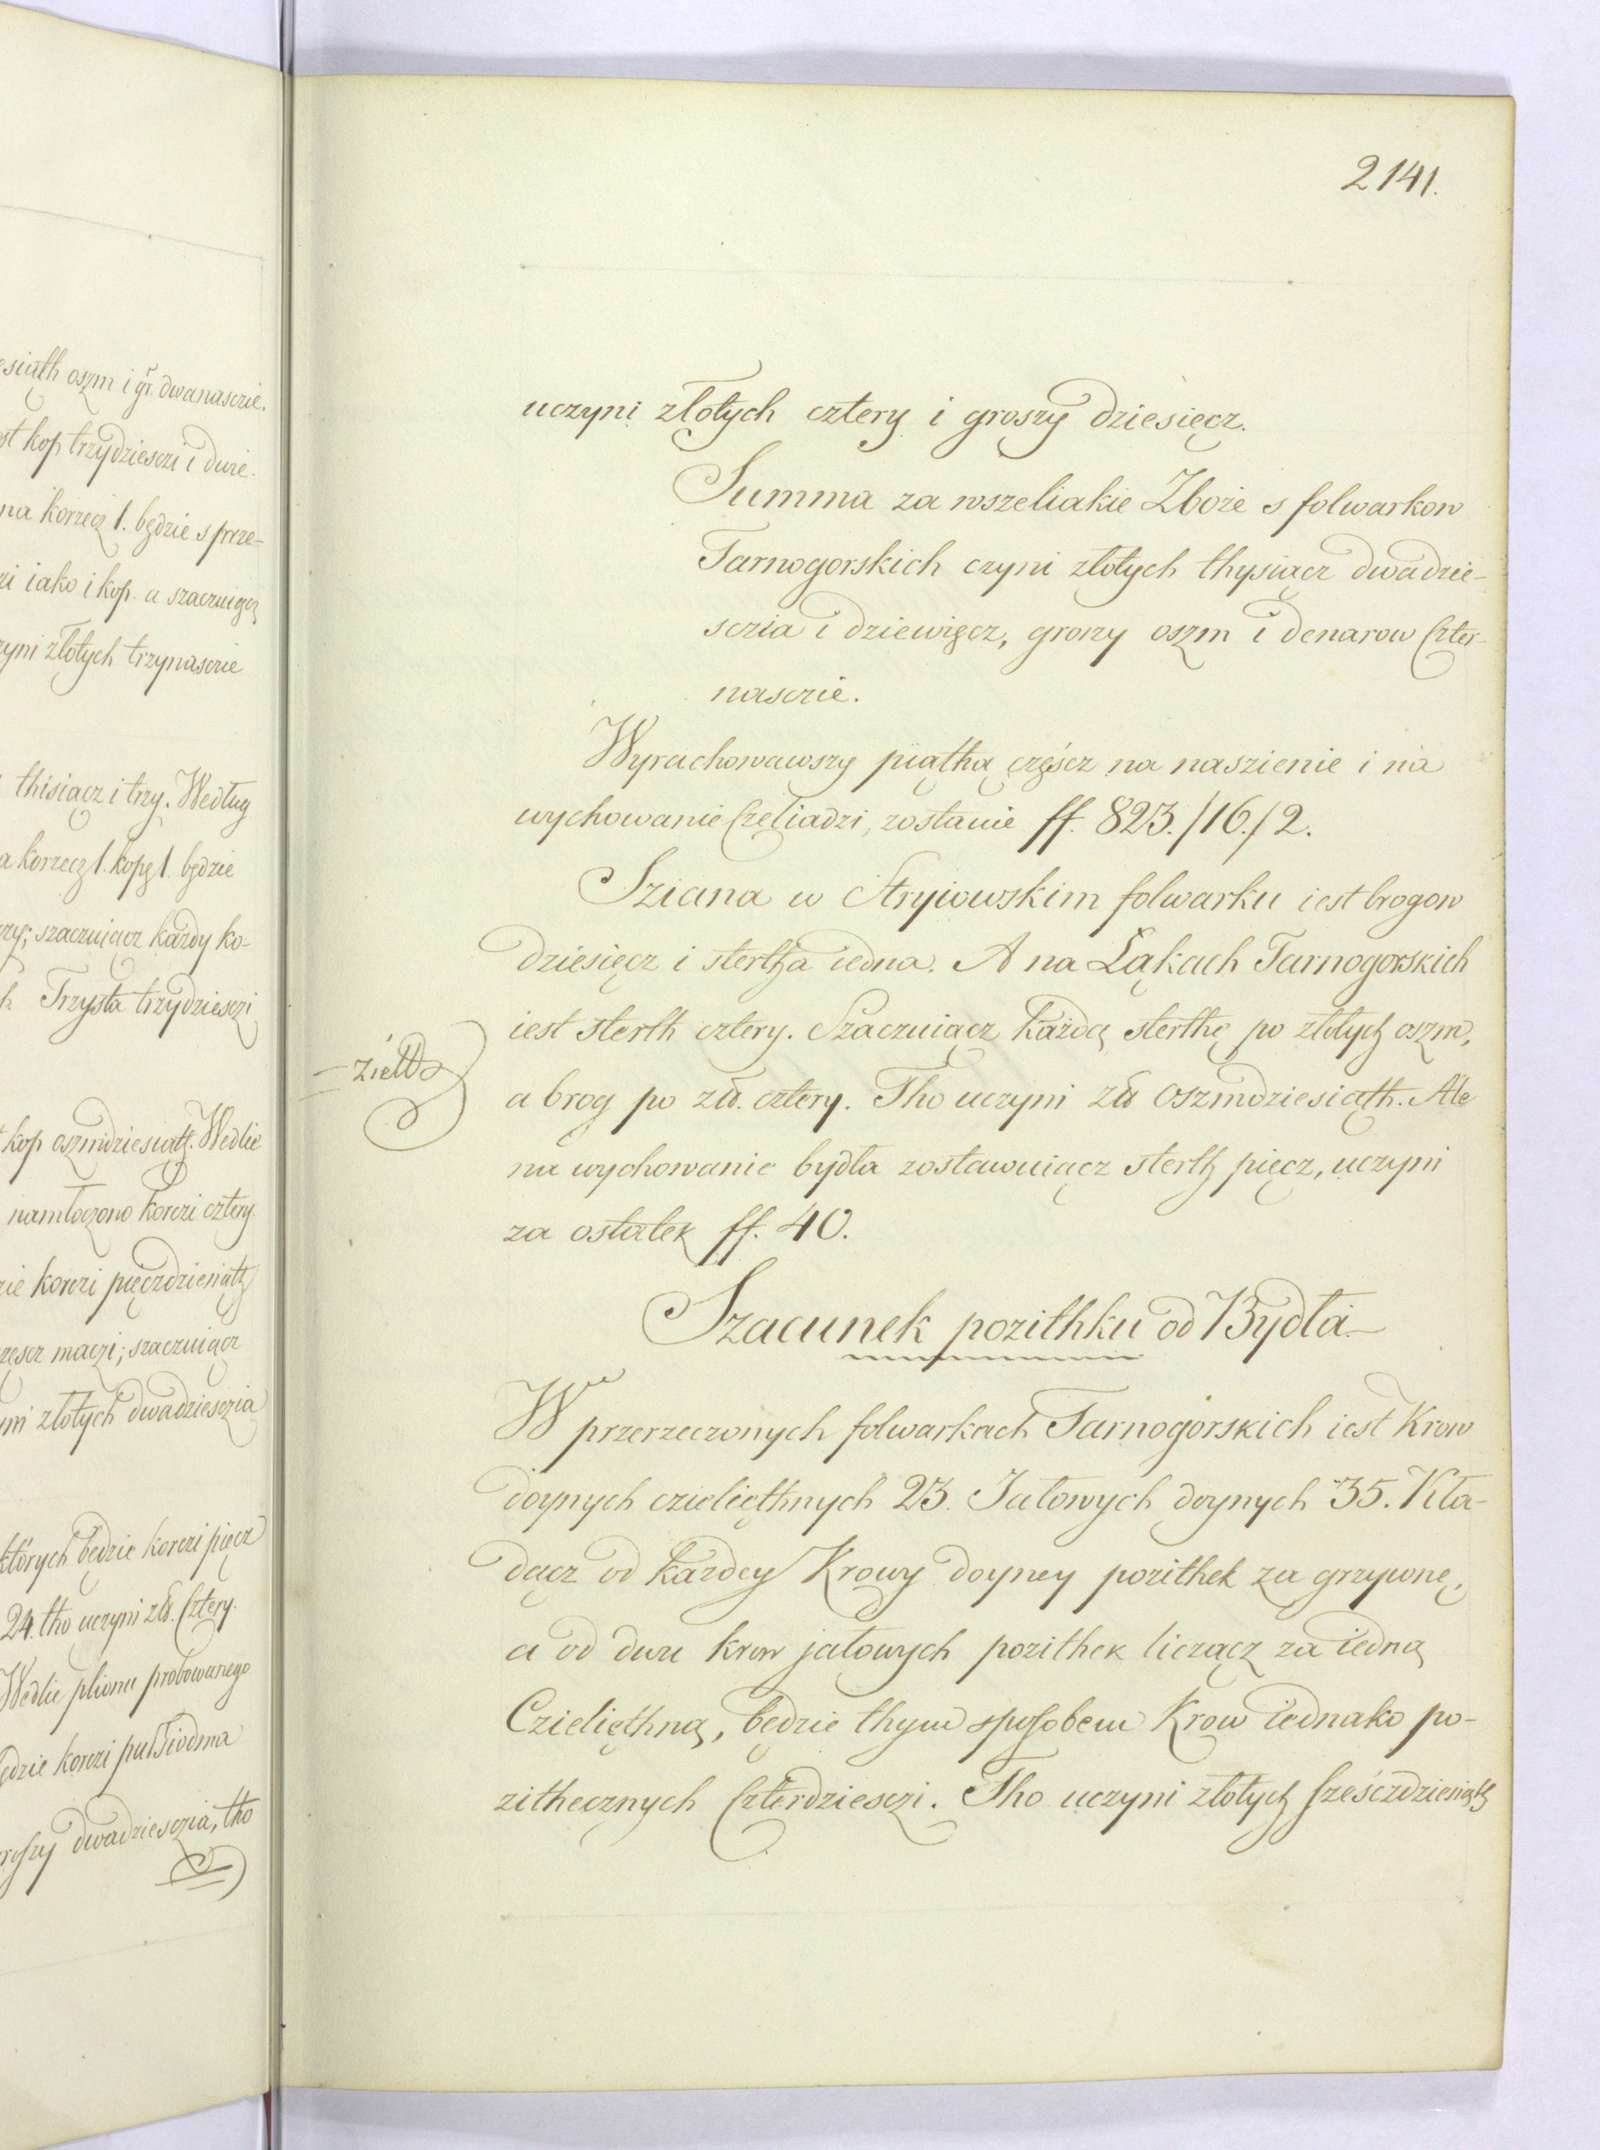 siąth oszm i gr. dwanasczie.
st kop trzydziesczi i dwie.
na korzecz 1. będzie s prze-
iako i kop. a szaczuiącz
zyni złotych trzynasczie
thisiącz i trzy. Według
a korzecz 1. kopę 1. będzie
szaczuiącz kazdy ko-
Trzysta trzydziesczi
kop oszmdziesiąth. Wedlie
namłoczono korczi cztery.
korczi pięczdziesiąth
maczi; szaczuiącz
złotych dwadziesczia
których będzie korczi pięcz
24. tho uczyni zł. Cztery.
Wedlie plionu probowanego
będzie korczi pułsiodma
dwadziesczia, tho
2141.
uczyni złotych cztery i groszy dziesięcz.
Summa za wszeliakie Zboże s folwarkow
Tarnogorskich czyni złotych thysiącz dwadzie-
sczia i dziewięcz, groszy oszm i denarow Czter-
nasczie.
Wyrachowawszy piąthą częścz na naszienie i na
wychowanie Czeliadzi, zostanie ff. 823./16./2.
Sziana w Stryiowskim folwarku iest brogow
dziesięcz i stertha iedna. A na Łąkach Tarnogorskich
iest sterth cztery. Szaczuiącz każdą sterthę po złotych oszm,
a brog po zł. cztery. Tho uczyni zł oszmdziesiąth. Ale
na wychowanie bydła zostawuiącz sterth pięcz, uczyni
za ostatek ff. 40.
Szacunek pozithku od Bydła.
W przerzeczonych folwarkach Tarnogorskich iest Krow
doynych czieliętnych 23. Jałowych doynych 35. Kła-
dącz od każdey Krowy doyney pozithek za grzywnę,
a od dwu krow jałowych pozithek licząc za iedną
Czielięthną, będzie thym sposobem Krow iednako po-
zithecznych Czterdziesczi. Tho uczyni złotych sześczdziesiąth